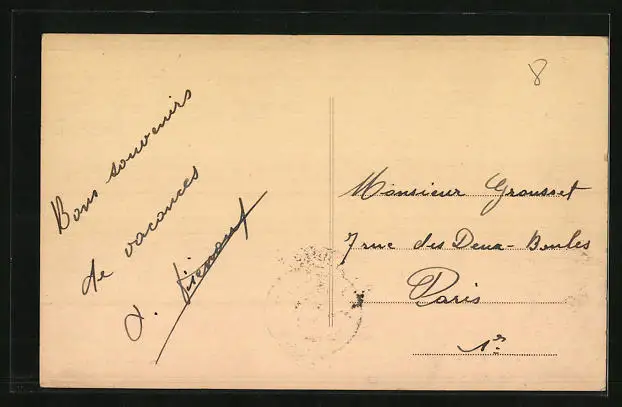 8
Bons souvenirs
de vacances
Monsieur Grousset
7 rue des Deux-Boules
Paris
1er